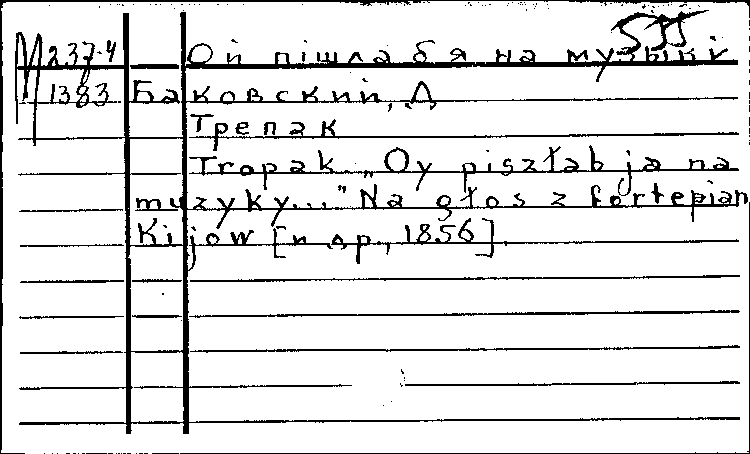 М 237-4 Ой пішла бя на музыкі
1383 Баковский, Д
Трепак
Tropak „Oy piszłab ja na
muzyky..." Na głos z fortepian
Kijów [и др., 1856].